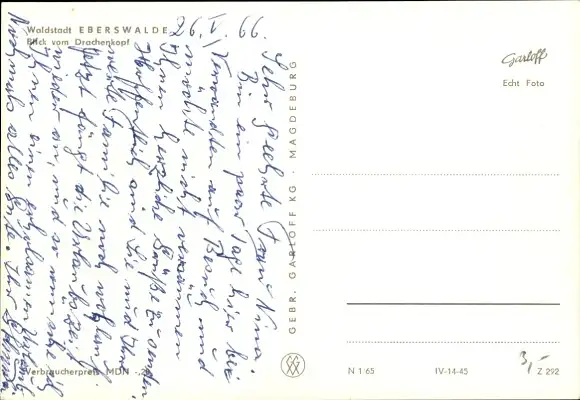 Waldstadt EBERSWALDE
Blick vom Drachenkopf
26. V. 66.
Sehr geehrte Frau Nina.
Bin ein paar Tage hier bei
Verwandten auf Besuch und
möchte nicht versäumen
Ihnen herzliche Grüße zu senden,
Hoffentlich sind Sie und Ihre
werte Familie noch wohlauf
Jetzt fängt die Urlaubszeit
wieder an, und so wünsche ich
Ihnen einen erholsamen Urlaub.
Nochmals alles Gute. Ihr
GEBR. GARLOFF KG · MAGDEBURG
Garloff
Echt Foto
Verbraucherpreis MDN -,20
N 1/65
IV-14-45
Z 292
3,-